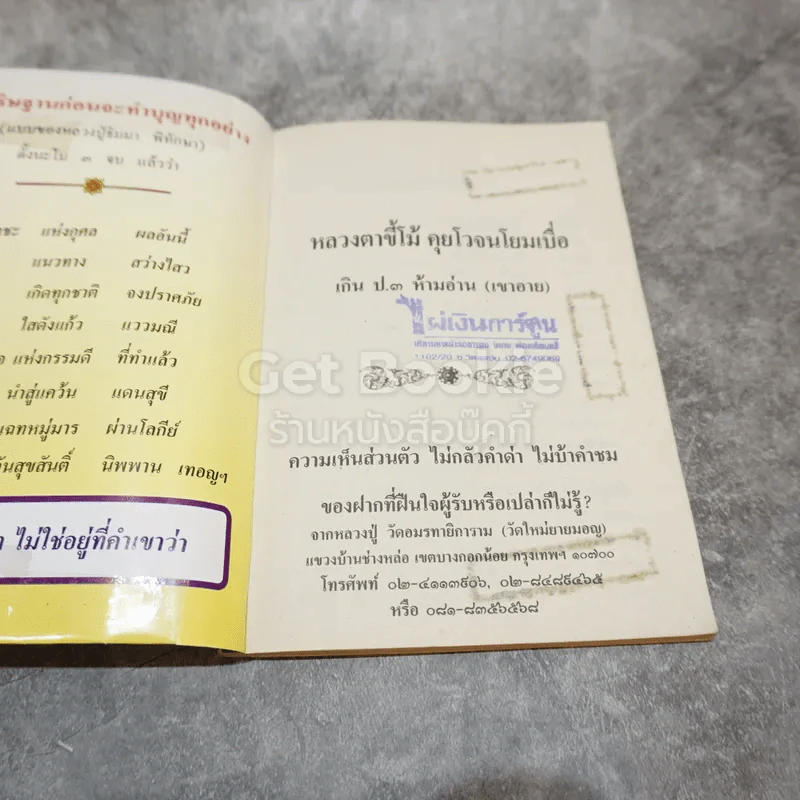 ธิษฐานก่อนจะทำบุญทุกอย่าง
(แบบของหลวงปู่ธัมมา พิทักษา)
ตั้งนะโม ๓ จบ แล้วว่า
แห่งกุศล ผลอันนี้
แนวทาง สว่างไสว
เกิดทุกชาติ จงปราศภัย
ใสดังแก้ว แววมณี
แห่งกรรมดี ที่ทำแล้ว
นำสู่แคว้น แดนสุขี
หมู่มาร ผ่านโลกีย์
สุขสันติ์ นิพพาน เทอญๆ
ไม่ใช่อยู่ที่คำเขาว่า
หลวงตาขี้โม้ คุยโวจนโยมเบื่อ
เกิน ป.๓ ห้ามอ่าน (เขาอาย)
ไผ่เงินการ์ตูน
Get Bookie
ร้านหนังสือบุ๊คกี้
ความเห็นส่วนตัว ไม่กลัวคำด่า ไม่บ้าคำชม
ของฝากที่ฝืนใจผู้รับหรือเปล่าก็ไม่รู้?
จากหลวงปู่ วัดอมรทายิการาม (วัดใหม่ยายมอญ)
แขวงบ้านช่างหล่อ เขตบางกอกน้อย กรุงเทพฯ ๑๐๗๐๐
โทรศัพท์ ๐๒-๔๑๑๓๙๐๖, ๐๒-๘๔๘๙๔๖๕
หรือ ๐๘๑-๘๓๕๖๕๖๘